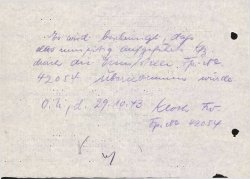 Es wird bescheinigt, dass
das umseitig aufgeführte
durch die Fp. №
42054 übernommen wurde
O.U., d. 29.10.43
Fp. № 42054